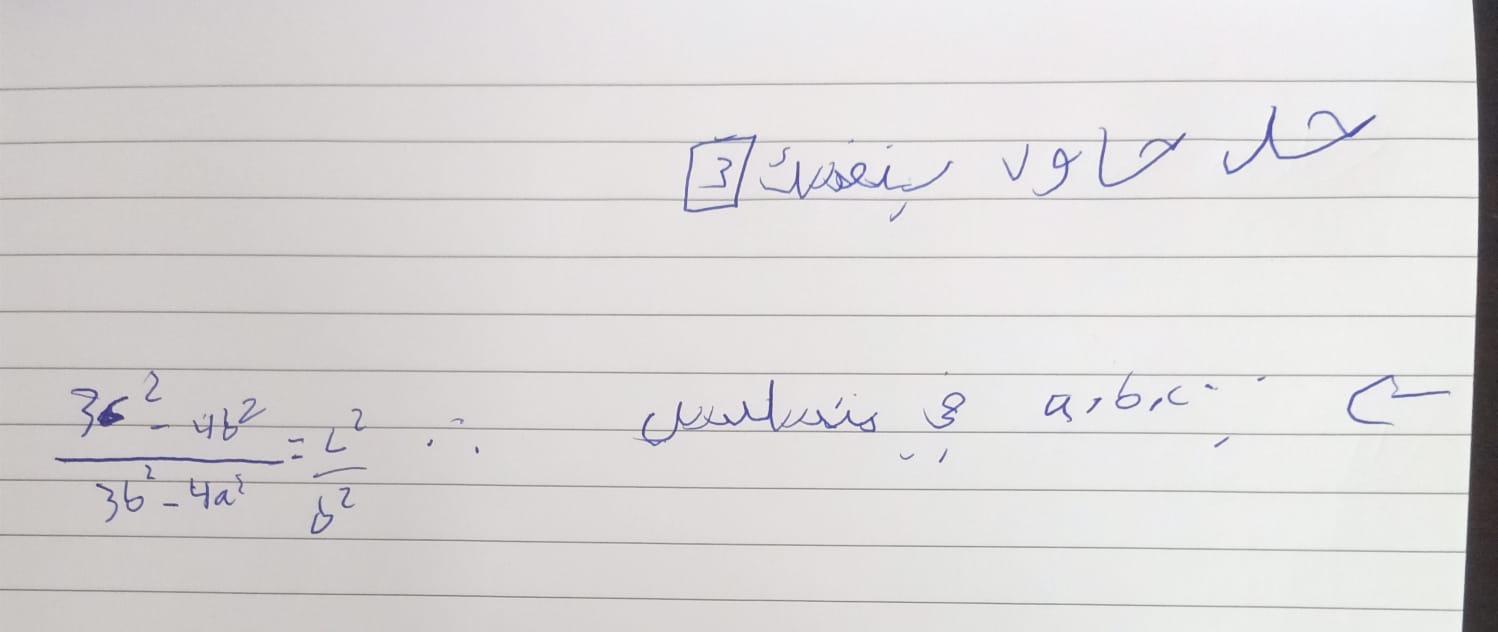 حل حاول بنفسك 3
∵ a, b, c في تناسب متسلسل ∴ \frac{3c^2 - 4b^2}{3b^2 - 4a^2} = \frac{c^2}{b^2}